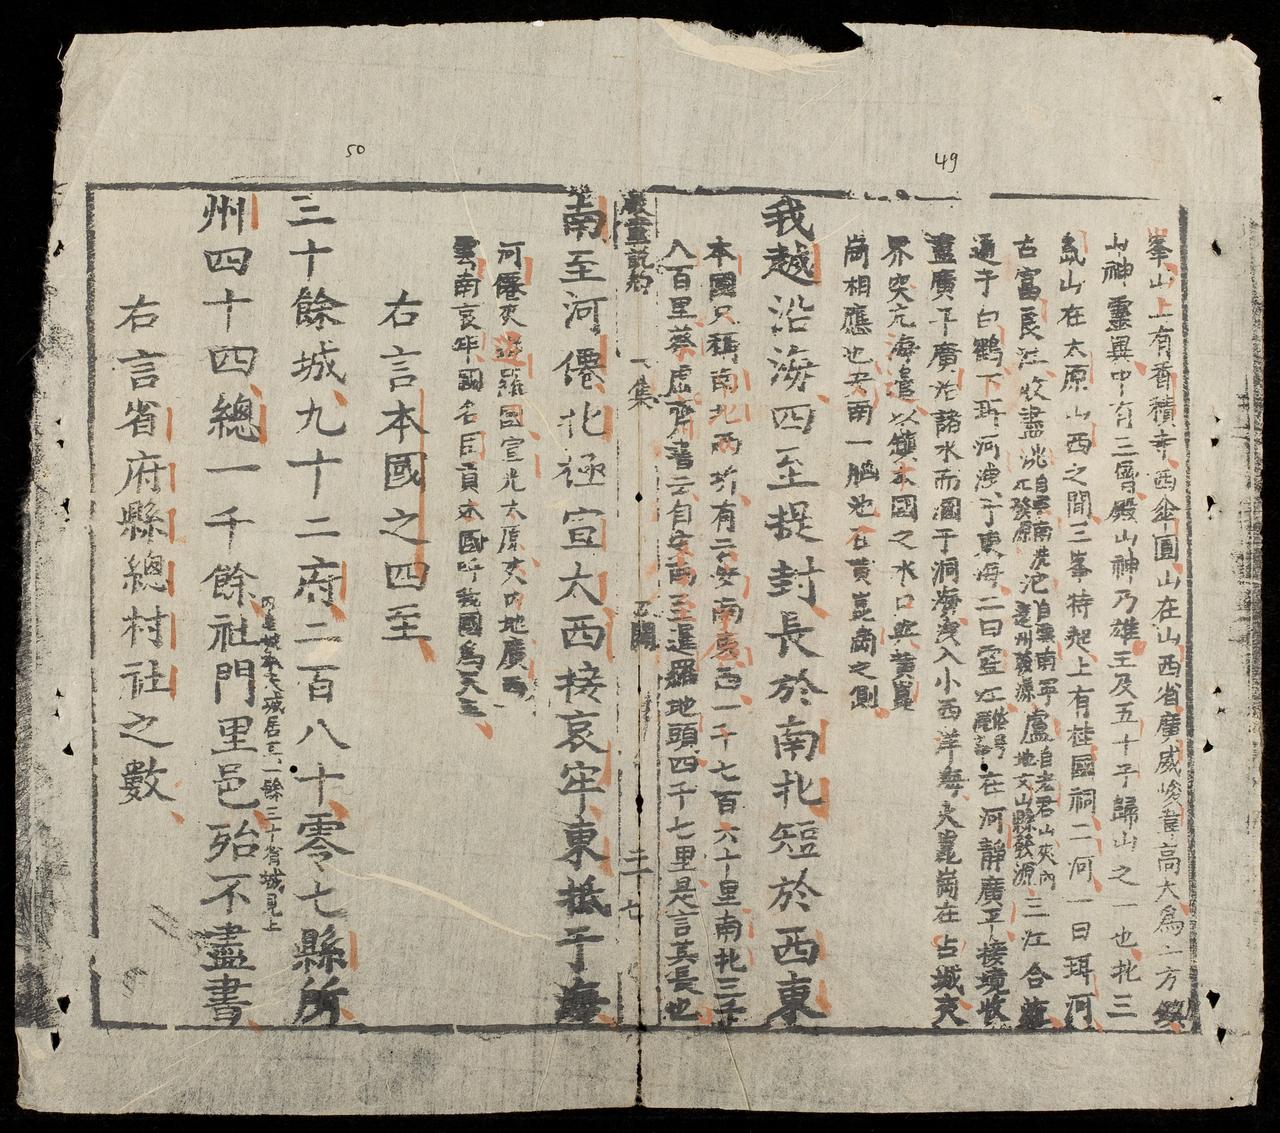 49
峯山上有香積寺西傘圓山在山西省廣威峻韋高大爲一方鎮
山神靈異中有三尊殿山神乃雄王及五十子歸山之一也北三
島山在太原山西之間三峯特起上有柱國祠二河一曰珥河
古富良江收盡洮自雲南洗沱發源自雲南寧遠州發源盧自老君山夾內地文山縣發源三江合流
通于白鶴下珥河洩于東海二曰靈江在河靜廣平接境收
盡廣平廣治諸水而瀦于洞海洩入小西洋海大崑崗在占城夾
界突亢海邊以鎮本國之水口與黃崑
崗相應也安南一腦池在黃崑崗之側
我越沿海四至提封長於南北短於西東
本國只稱南北兩圻有云安南東西一千七百六十里南北三千
八百里蔡虛齋書云自安南至暹羅地頭四千七里是言其長也
啟童說約
人集
二十七
南至河僊北極宣太西接哀牢東抵于海
河僊夾暹羅國宣光太原夾內地廣西
雲南哀牢國名臣貢本國呼我國爲天王
50
右言本國之四至
三十餘城九十二府二百八十零七縣所
城居三一餘三十省城見上
州四十四總一千餘社門里邑殆不盡書
右言省府縣總村社之數